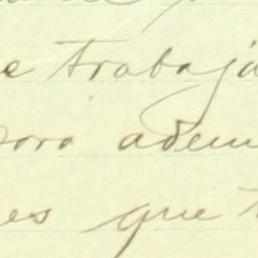 e trabaja
para adem
es que t